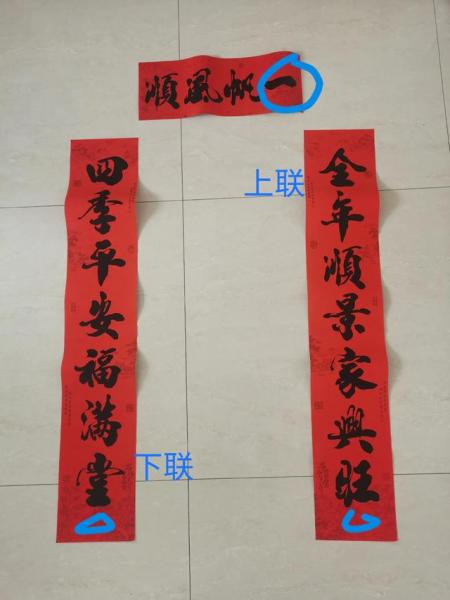 一帆風順
上联
全年順景家興旺
四季平安福滿堂
下联